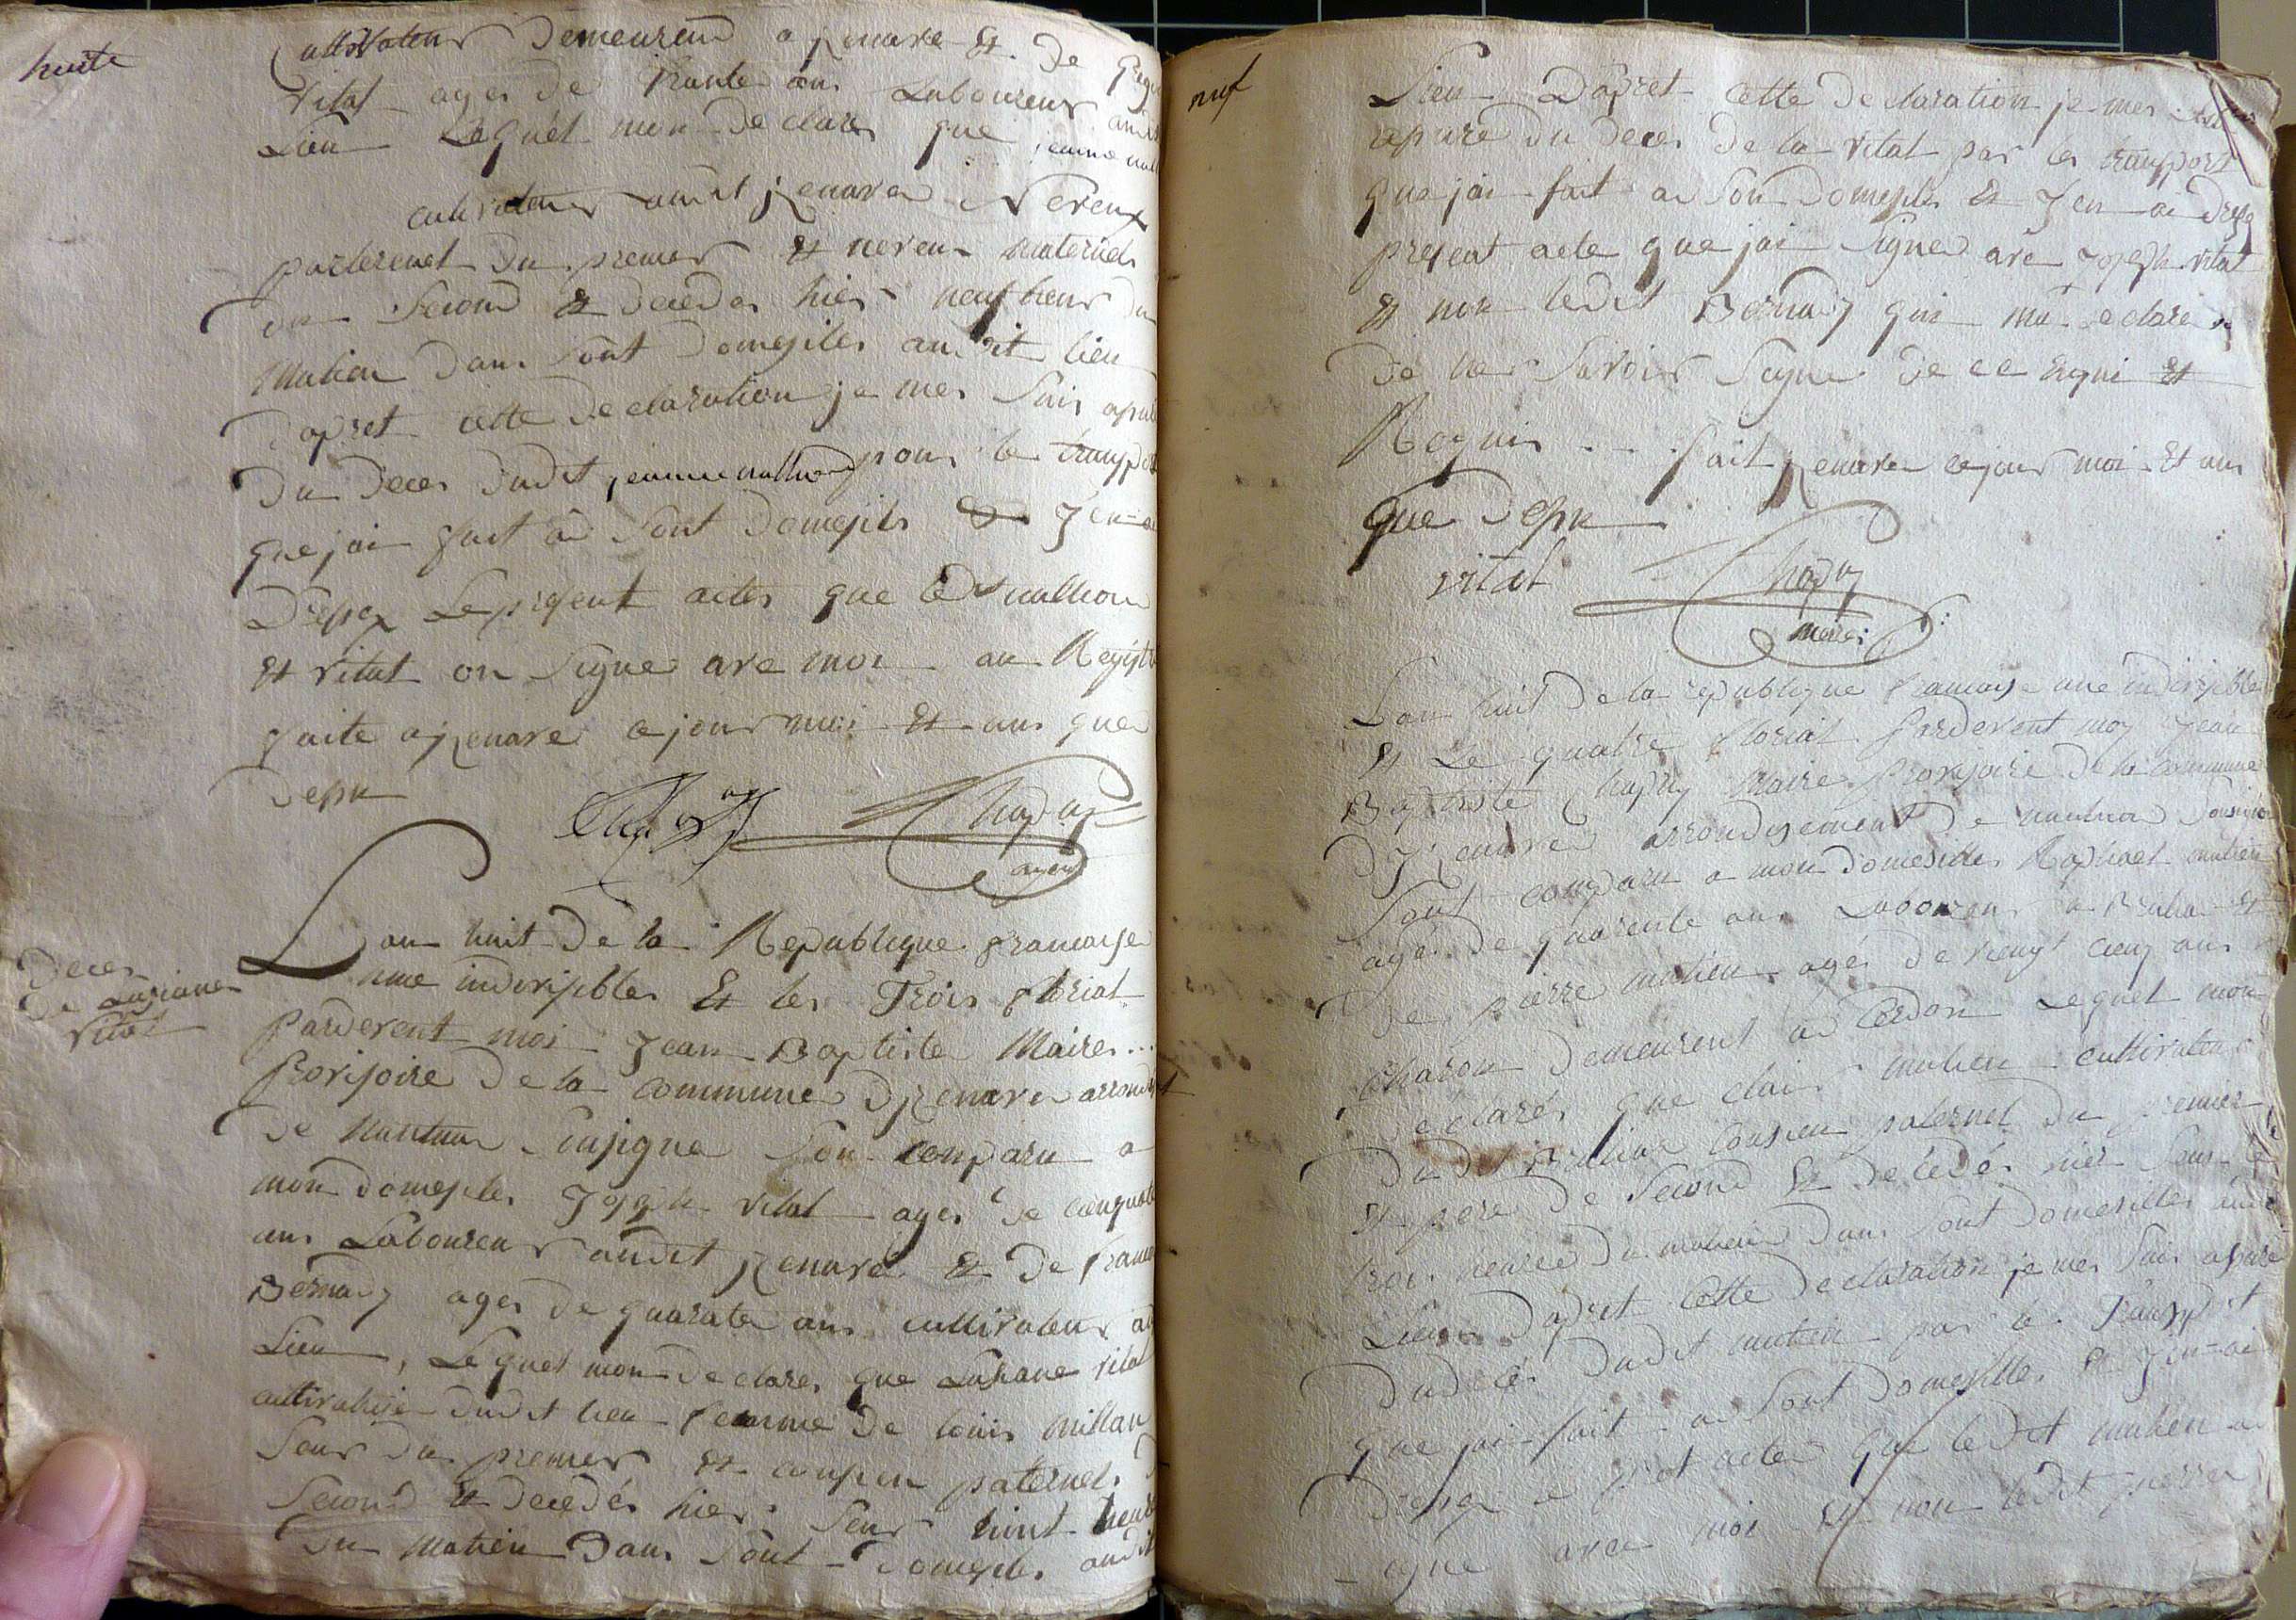 huite
Cultivateur demeurend a jzenave Et de
vital ages de trante ans Laboureur
Lieu Lequel mon declares que
cultivateur audit jzenave Neveux
parterenet du premier Et neveux maternel
du Second Et decedes hier neuf heur du
Matien dans sont domesiles audit lieu
dapret cette declaration je mes Suis
du deces dudit pour le transport
que jai fait a sont domesils Et J en ai
dresez Le present actes que Led
Et vital on Signe ave moi au Registre
faite a jzenave ce jour moi Et ans que
desu
Chapuy
agent
Deces
de Lusiane
Vital
Lan huit de la Republique francaise
une indivisibles Et les Trois floriat
Pardevent moi Jean Baptiste Maires ...
Provisoire de la commune djzenave
de Nantua Sousigne Son comparu a
mon domesiles Joseph vital ages de cinquate
ans Laboureur audit jzenave Et de
Bernady ages de quarate ans cultivateur
Lieu, Lequel mon declares que Lusiane vital
cultivatrise dudit lieu femme de louis
Seur du premier Et cousien paternel
Second Et decedes hier Sur huit heure
du Matien dans Sont domesiles audit
neuf
Lieu Dapret cette declaration je mes
apure du deces de la vital par les transport
que jai fait a Son domesils Et J en ai
present acte que jai Signe ave Joseph vital
Et non ledit Bernady qui ma declare
de ne Savoir Signe de ce Enqui Et
Requis .... fait jzenave ce jour moi Et ans
que desu
vital
Chapuy
maire
Lan huit de la republique francaise une indivisible
Et Le quatre floriat Pardevent moy Jean
Baptiste Chapuy Maire Provisoire de la Commune
djzenave arrondisement de nantua Sousigne
Sont comparu a mon domesilles Raphael mathieu
agé de quarente ans Laboureur a Et
de pierre matieu ages de vengt cienq ans
Charon demeurent a Cerdon Lequel mon
declarés que clair matieu cultivateur
dudit cousien paternel du premier
Et pere de Second Et decedé hier Sur le
trois heures du matien dans Sont domesilles audit
Lieu Dapret cette declaration je mes Suis apure
du decés dudit matieu par le Transport
que jai fait a Sont domesilles Et J en ai
dressé le actes que ledit matieu a
Signe avec moi Et non ledit pierre